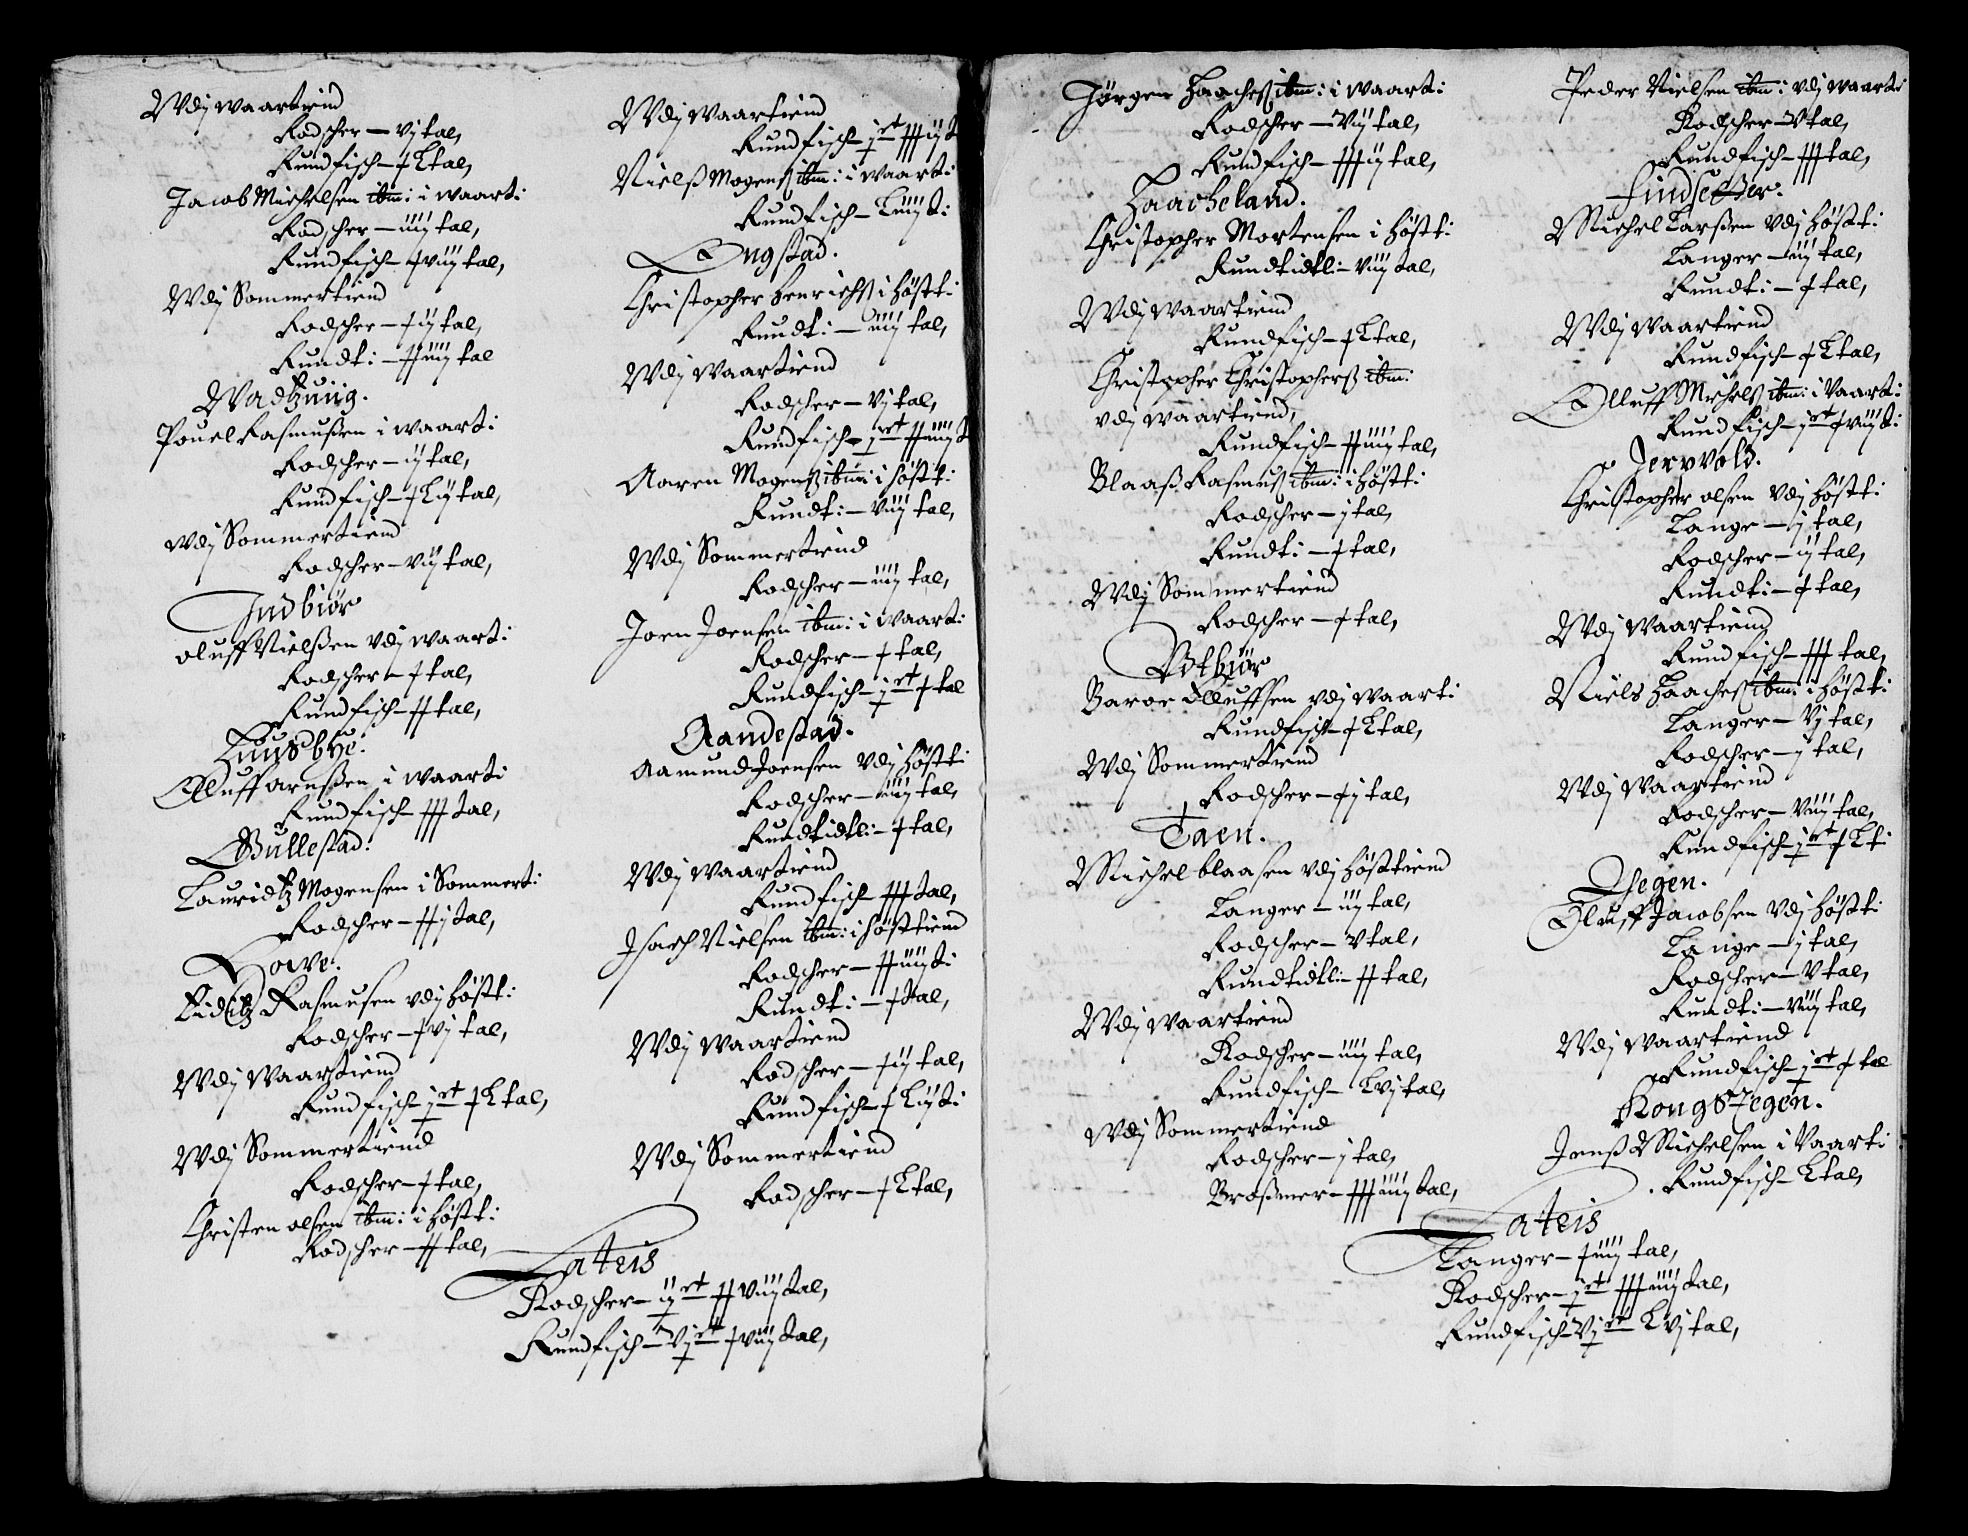 Wdj waartiend
Rodscher – vj tal,
Rundfisch – ɟ L tal,
Jacob Michelsen ibm: i waart:
Rodscher – iiij tal,
Rundfisch – ɟ viij tal,
Wdj Sommertiend
Rodscher – ɟ ij tal,
Rundt: – ɟɟ iiij tal
Pouel Rasmußen i waart:
Rodscher – ij tal,
Rundfisch – ɟ L ij tal,
Wdj Sommertiend
Rodscher – vij tal,
Indbiør
Oluff Nielßen vdj waart:
Rodscher – ɟ tal,
Rundfisch – ɟɟ tal,
Luusbye.
Olluff arnßen i waart:
Rundfisch – ɟɟɟ tal,
Bullestad.
Lauridtz Mogensen i Sommert:
Rodscher – ɟɟ j tal,
Howe.
Rasmusen vdj Høst:
Rodscher – ɟ vj tal,
Wdj Waartiend
Rundfisch – j ɟ L tal,
Wdj Sommertiend
Rodscher – ɟ tal,
Christen olsen ibm: i Høst:
Rodscher – ɟɟ tal,
Wdj Waartiend
Rundfisch – j ɟɟɟ ij t
Nielß Mogenß ibm: i waart:
Rundfisch – L iiij t:
Engstad.
Christopher Henrichß i Høst:
Rundt: – iiij tal,
Wdj Waartiend
Rodscher – vj tal,
Rundfisch – j ɟɟ iiij t
Aaren Mogenß ibm: i Høst:
Rundt: – viij tal,
Wdj Sommertiend
Rodscher – iiij tal,
Joen Joensen ibm: i waart:
Rodscher – ɟ tal,
Rundfisch – j ɟ tal
Aandestad.
Aamund Joensen vdj Høst:
Rodscher – iiij tal,
Rundtidtl: – ɟ tal,
Wdj Waartiend
Rundfisch – ɟɟɟ tal,
Isach Nielsen ibm: i Høsttiend
Rodscher – ɟɟ iiij t:
Rundt: – ɟ tal,
Wdj Waartiend
Rodscher – ɟ ij tal,
Rundfisch – ɟ L ij t:
Wdj Sommertiend
Rodscher – ɟ L tal,
Lateis
Rodscher – ij ɟɟ viij tal,
Rundfisch – vj ɟ viij tal,
Jørgen Haacheß ibm: i waart:
Rodscher – vij tal,
Rundfisch – ɟɟɟ ij tal,
Haacheland.
Christopher Mortensen i Høst:
Rundtidtl: – viij tal,
Wdj Waartiend
Rundfisch – ɟ L tal,
Christopher Christopherß ibm:
vdj waartiend,
Rundfisch – ɟɟ iiij tal,
Blaaß Rasmuß ibm: i Høst:
Rodscher – j tal,
Rundt: – ɟ tal,
Wdj Sommertiend
Rodscher – ɟ tal,
Vdtbiør
Baroe Olluffsen vdj waart:
Rundfisch – ɟ L tal,
Wdj Sommertiend
Rodscher – ɟ j tal,
Taen.
Michel blaasen vdj Høsttiend
Langer – iij tal,
Rodscher – v tal,
Rundtidtl: – ɟɟ tal,
Wdj Waartiend
Rodscher – iiij tal,
Rundfisch – L vj tal,
Wdj Sommertiend
Rodscher – j tal,
Broßmer – ɟɟɟ iiij tal,
Peder Nielsen ibm: vdj waart:
Rodscher – v tal,
Rundfisch – ɟɟɟ tal,
Michel Larßen vdj Høst:
Langer – iij tal,
Rundt: – ɟ tal,
Wdj Waartiend
Rundfisch – ɟ L tal,
Olluff Michelß ibm: i Vaart:
Rundfisch – j ɟ viij t:
Jervold.
Christopher olsen vdj Høst:
Lange – j tal,
Rodscher – ij tal,
Rundt: – ɟ tal,
Wdj Waartiend
Rundfisch – ɟɟɟ tal,
Niels Haacheß ibm: i Høst:
Langer – vj tal,
Rodscher – j tal,
Wdj Waartiend
Rodscher – viij tal,
Rundfisch – j ɟ L t:
Thegen.
Oluff Jacobsen vdj Høst:
Lange – j tal,
Rodscher – v tal,
Rundt: – viij tal,
Wdj Waartiend
Rundfisch – j ɟ tal
Kongstegen.
Jenß Michelsen i Vaart:
Rundfisch – L tal,
Lateis
Langer – ɟ iiij tal,
Rodscher – j ɟɟɟ iiij tal,
Rundfisch – vj L vj tal,